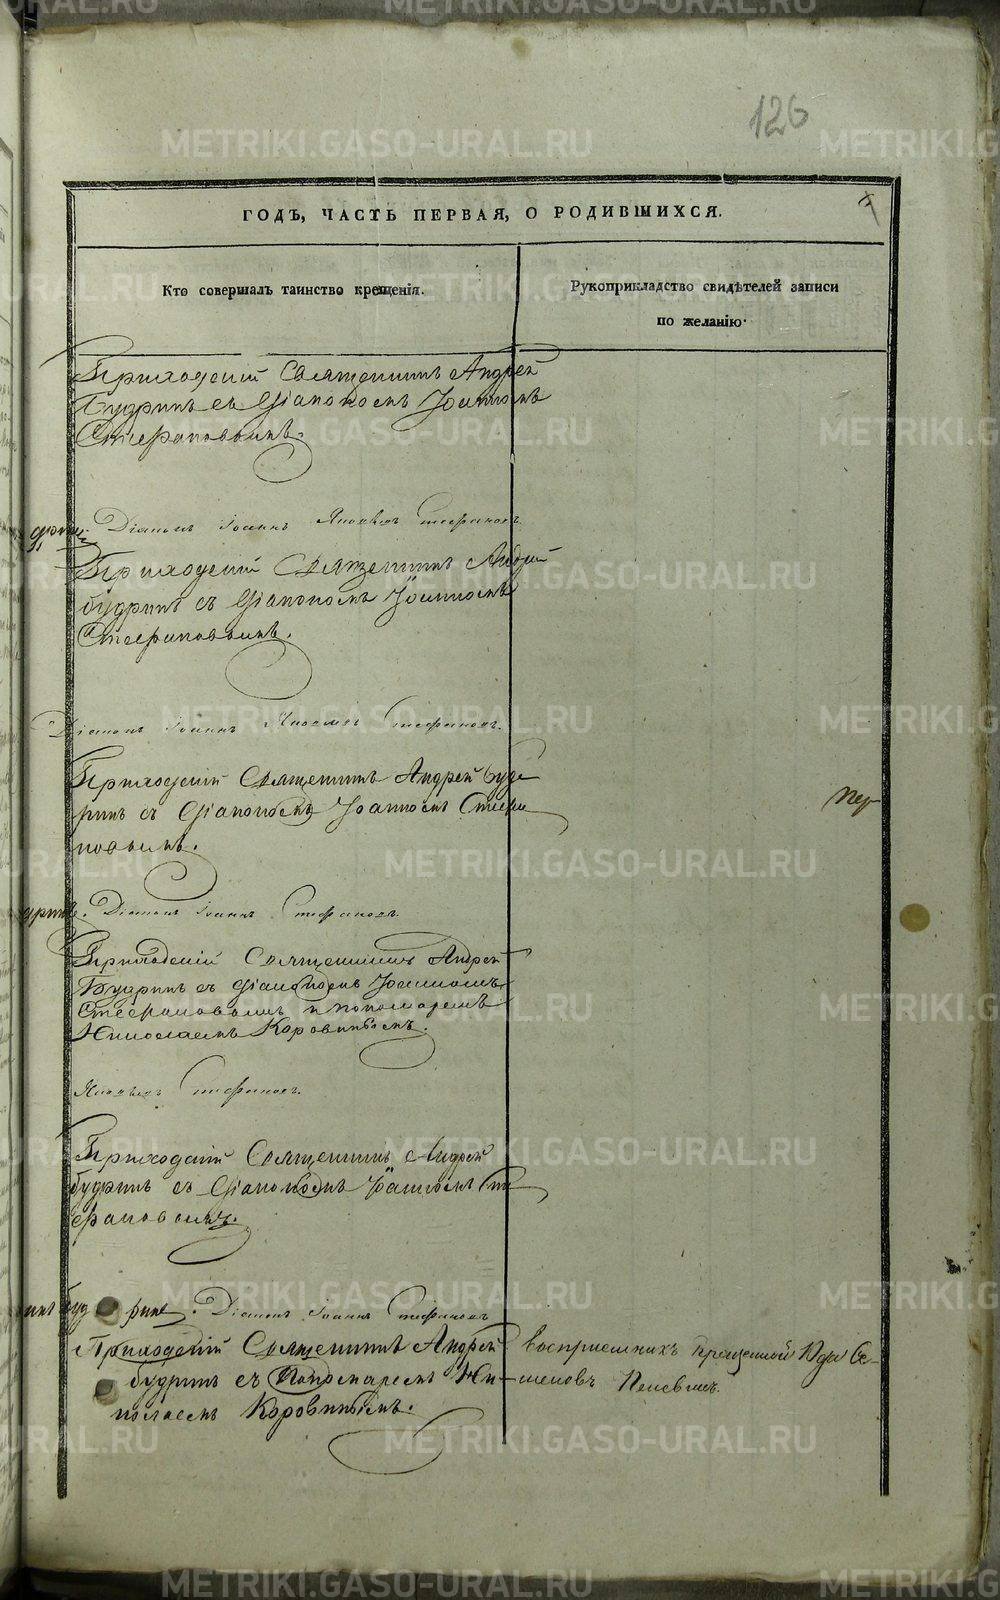 126
ГОДЪ, ЧАСТЬ ПЕРВАЯ, О РОДИВШИХСЯ.
Кто совершалъ таинство крещенія.
Рукоприкладство свидѣтелей записи
по желанію.
Приходскій Священникъ Андрей
Будринъ съ Діакономъ Іоанномъ
Стефановымъ.
Діаконъ Іоаннъ Яковлевъ Стефановъ.
Приходскій Священникъ Андрей
Будринъ съ Діакономъ Іоанномъ
Стефановымъ.
Діаконъ Іоаннъ Яковлевъ Стефановъ.
Приходскій Священникъ Андрей Буд-
ринъ съ Діакономъ Іоанномъ Стефа
новымъ.
Діаконъ Іоаннъ Стефановъ.
Приходскій Священникъ Андрей
Будринъ съ Діакономъ Іоанномъ
Стефановымъ и пономаремъ
Николаемъ Коровинымъ.
Яковлевъ Стефановъ.
Приходскій Священникъ Андрей
Будринъ съ Діакономъ Іоанномъ Сте
фановымъ.
Діаконъ Іоаннъ Стефановъ
Приходскій Священникъ Андрей
Будринъ съ Пономаремъ Ни-
колаемъ Коровинымъ.
Воспріемникъ крещенной
METRIKI.GASO-URAL.RU